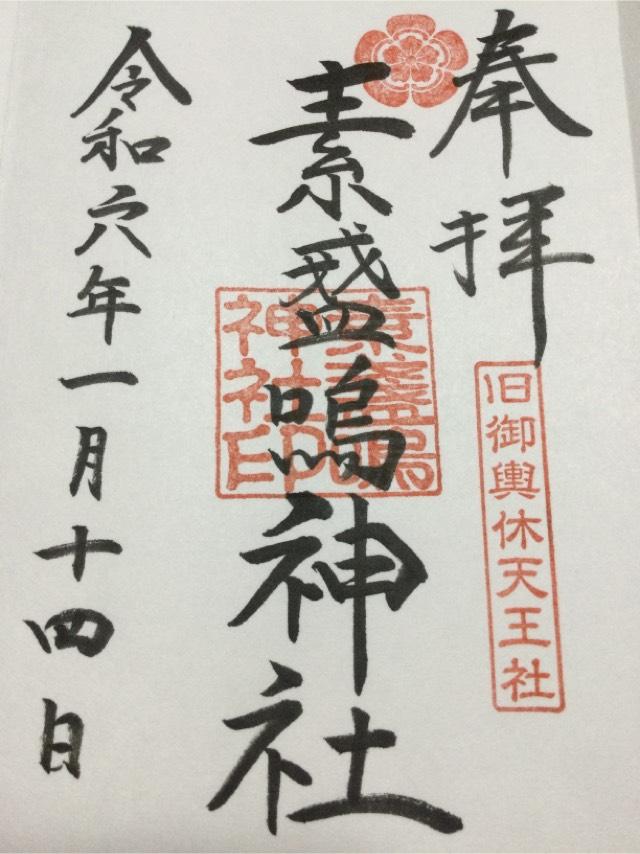 奉拝
旧御輿休天王社
素盞嗚神社
素盞嗚
神社印
令和六年一月十四日